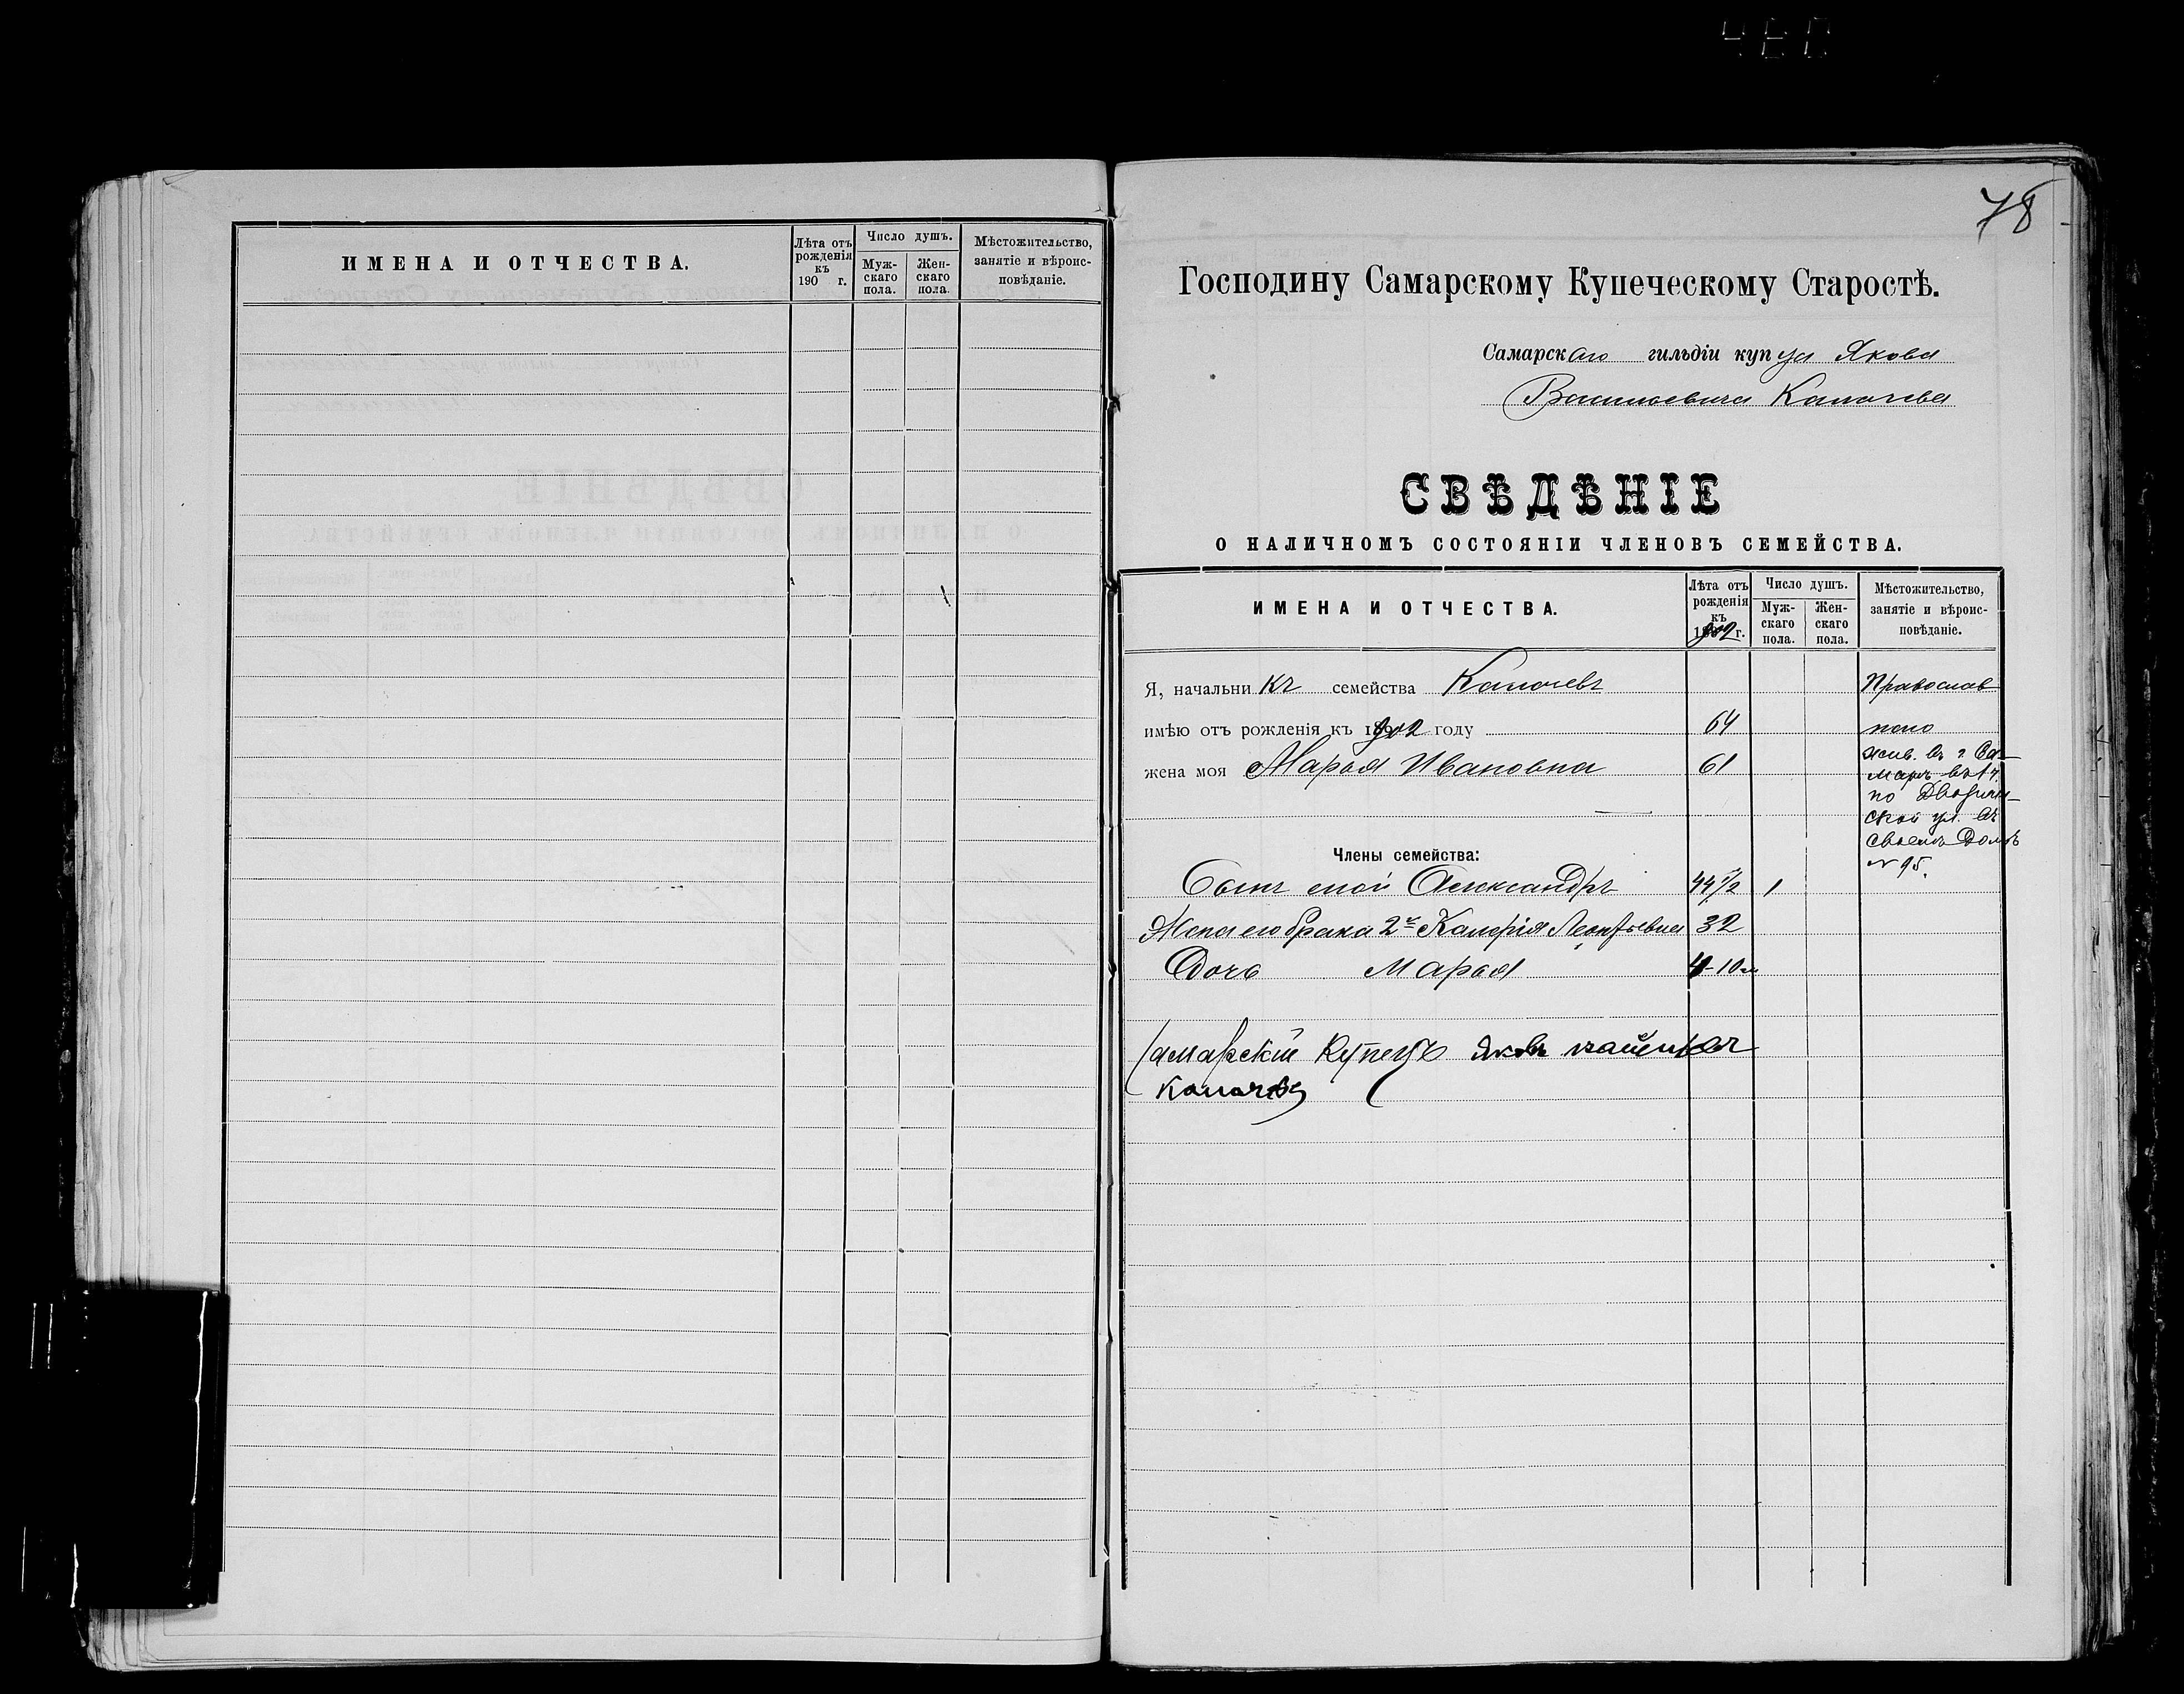 ИМЕНА И ОТЧЕСТВА.
Лѣта отъ рожденія къ 190 г.
Число душъ.
Муж-скаго пола.
Жен-скаго пола.
Мѣстожительство, занятіе и вѣроис-повѣданіе.
78
Господину Самарскому Купеческому Старостѣ.
Самарскаго гильдіи купца Якова
Васильевича
СВѢДѢНІЕ
О НАЛИЧНОМЪ СОСТОЯНІИ ЧЛЕНОВЪ СЕМЕЙСТВА.
ИМЕНА И ОТЧЕСТВА.
Лѣта отъ рожденія къ 1902 г.
Число душъ.
Муж-скаго пола.
Жен-скаго пола.
Мѣстожительство, занятіе и вѣроис-повѣданіе.
Я, начальникъ семейства
Православ
имѣю отъ рожденія къ 1902 году 64
наго
жена моя Марья Ивановна 61
жив. въ г. Са-
марѣ въ 1 ч.
по Дворян-
ской ул. въ
своемъ домѣ
№ 95.
Члены семейства:
Сынъ мой Александръ 44 1/2 1
Жена его брака 2го Калерія Леонтьевна 32
Дочь Марья 4-10 м
Самарскій Купецъ Яковъ